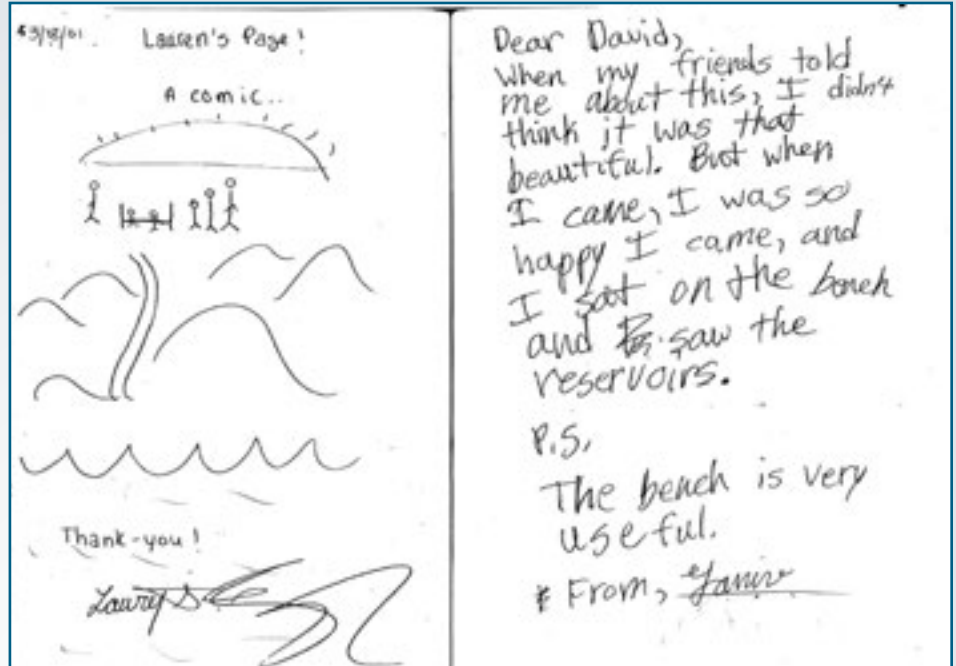 Lauren's Page!
A comic..
Thank-you!
Dear David,
When my friends told
me about this, I didn't
think it was that
beautiful. But when
I came, I was so
happy I came, and
I sat on the bench
and saw the
reservoirs.
P.S.
The bench is very
useful.
* From,